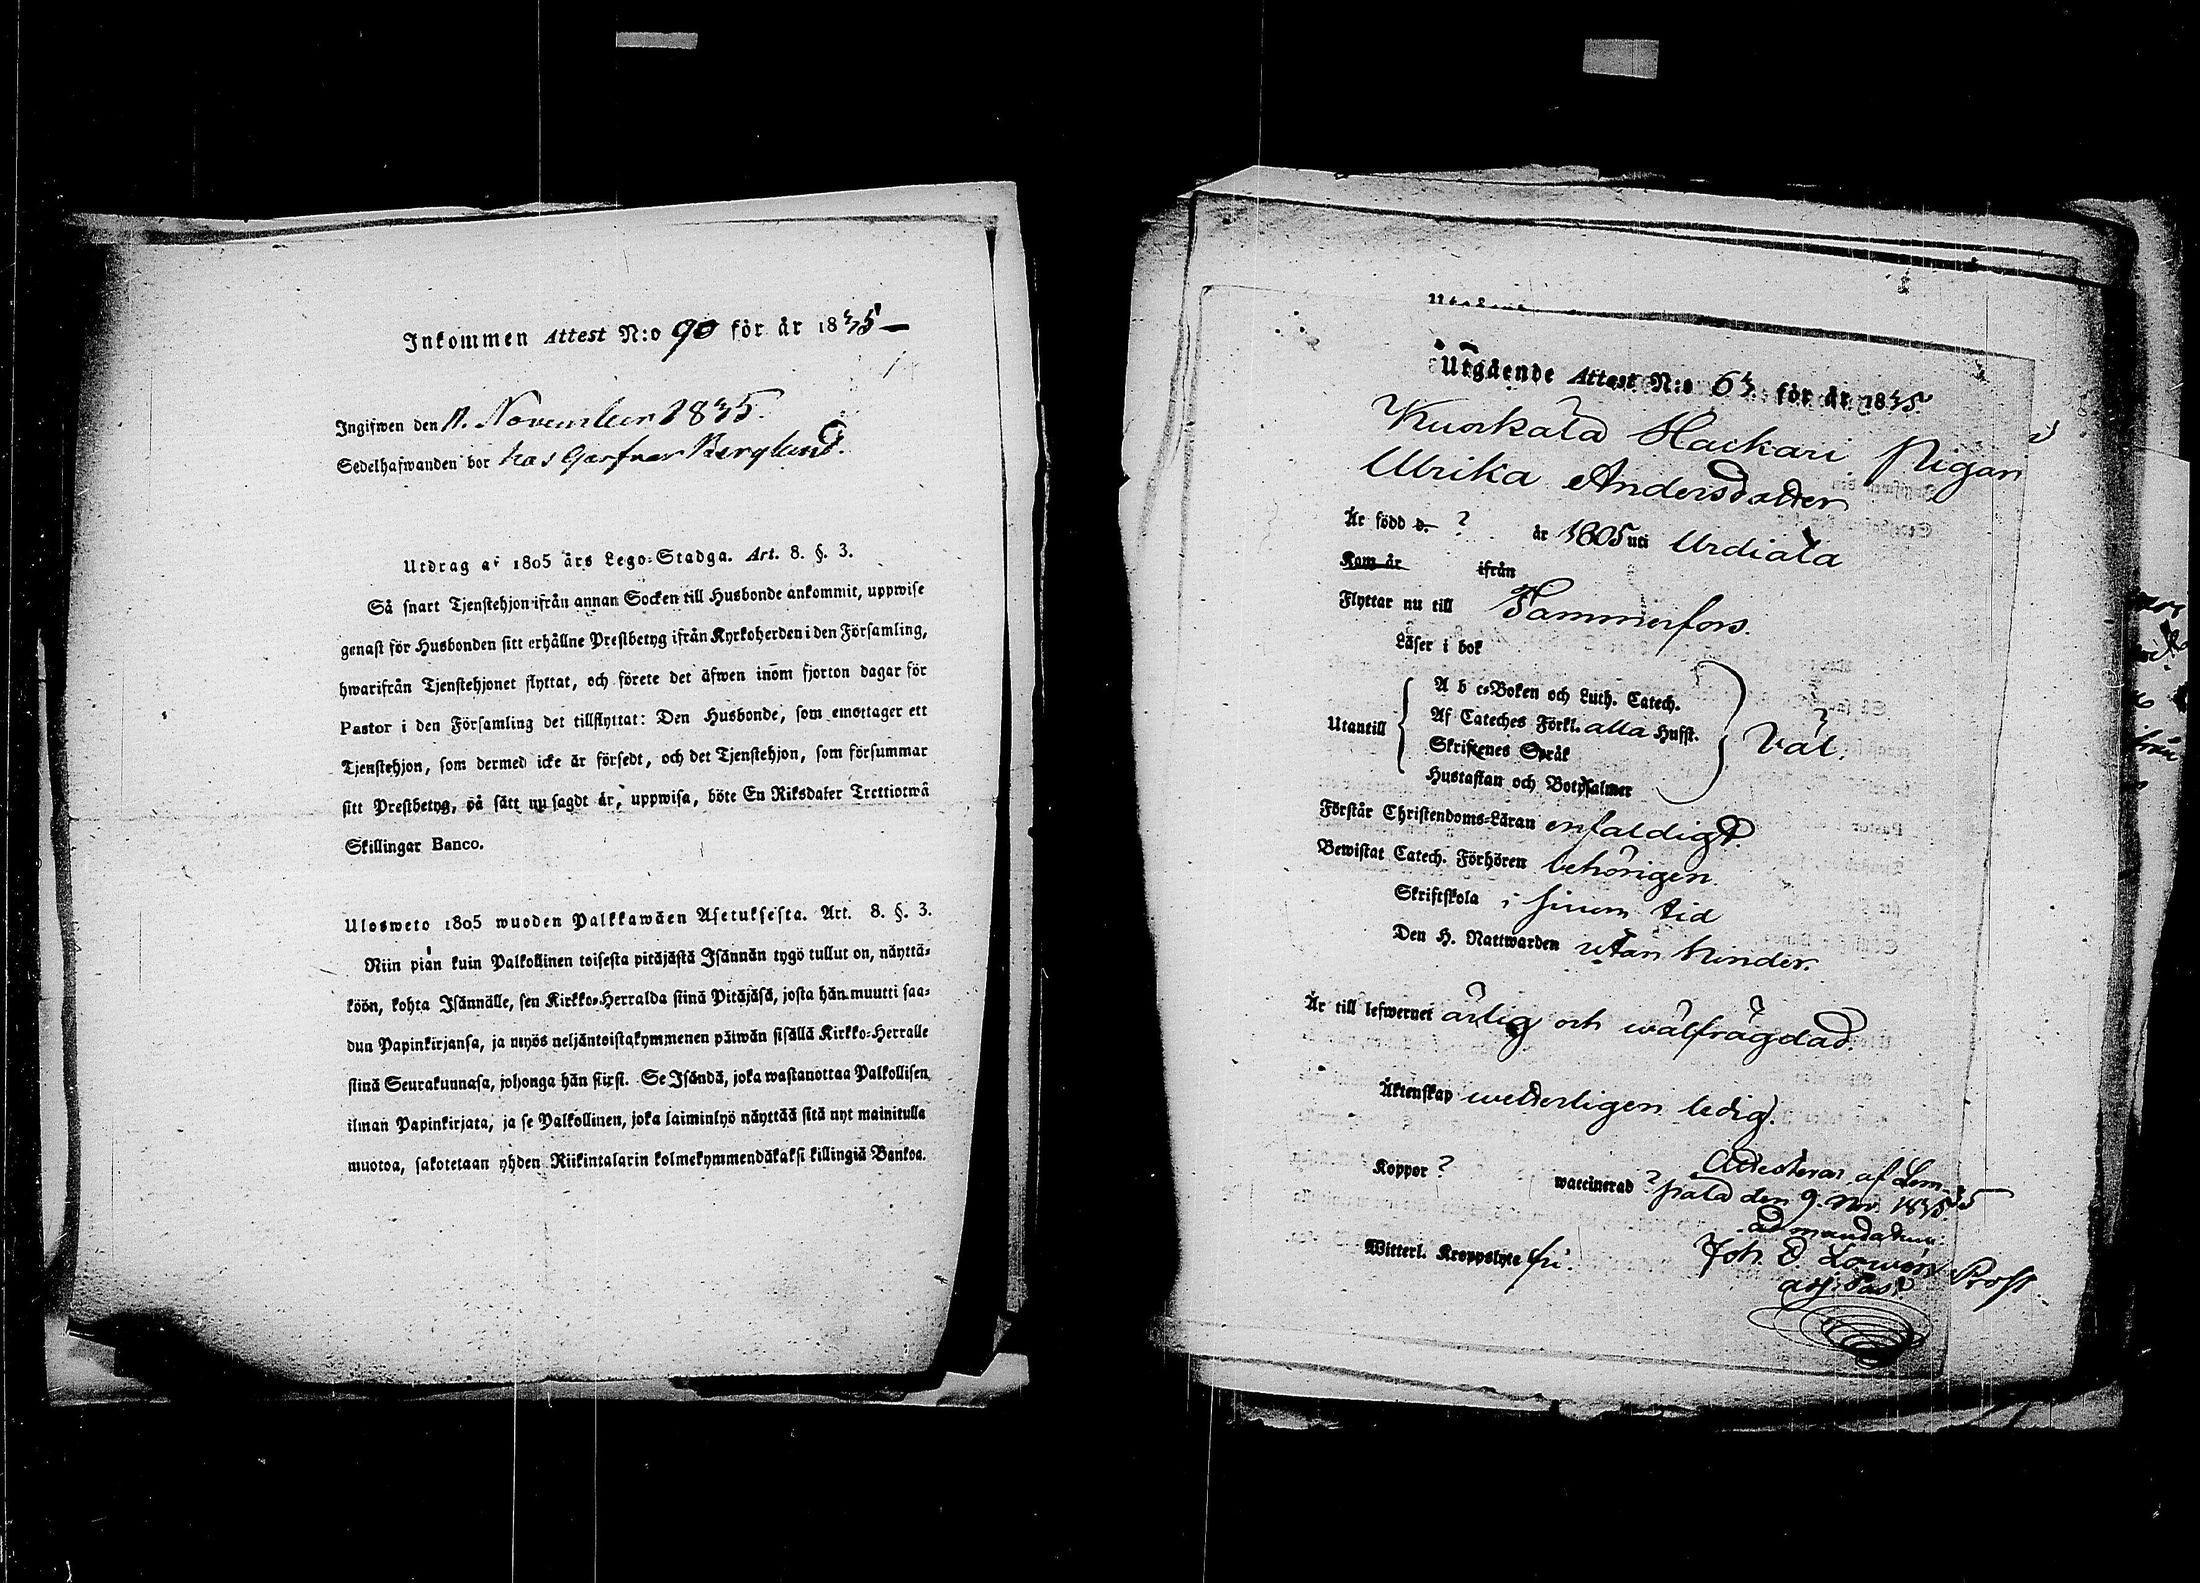 Inkommen Attest N:o 90 för år 1835
Ingifwen den 11. November 1835.
Sedelhafwanden bor hos Garfvar Berglund.
Utdrag af 1805 års Lego-Stadga. Art. 8. §. 3.
Så snart Tjenstehjon ifrån annan Socken till Husbonde ankommit, uppwise
genast för Husbonden sitt erhållne Prestbetyg ifrån Kyrkoherden i den Församling,
hwarifrån Tjenstehjonet flyttat, och förete det äfwen inom fjorton dagar för
Pastor i den Församling det tillflyttat: Den Husbonde, som emottager ett
Tjenstehjon, som dermed icke är försedt, och det Tjenstehjon, som försummar
sitt Prestbetyg, på sätt nu sagdt är, uppwisa, böte En Riksdaler Trettiotwå
Skillingar Banco.
Ulosweto 1805 wuoden Palkkawäen Asetuksesta. Art. 8. §. 3.
Niin pian kuin Palkollinen toisesta pitäjästä Isännän tygö tullut on, näyttä-
köön, kohta Isännälle, sen Kirkko-Herralda siinä Pitäjäsä, josta hän muutti saa-
dun Papinkirjansa, ja myös neljäntoistakymmenen päiwän sisällä Kirkko-Herralle
siinä Seurakunnasa, johonga hän siirst. Se Isändä, joka wastanottaa Palkollisen
ilman Papinkirjata, ja se Palkollinen, joka laiminlyö näyttää sitä nyt mainitulla
muotoa, sakotetaan yhden Riikintalarin kolmekymmendäkaksi killingiä Bankoa.
Utgående Attest N:o 63 för år 1835.
Kuokala Hackari Pigan
Ulrika Andersdotter
Är född d. ? år 1805 uti Urdiala
Kom år ifrån
Flyttar nu till Tammerfors.
Läser i bok
A b c-Boken och Luth. Catech.
Utantill Af Cateches Förkl. alla Hufst. Väl.
Skriftenes Språk
Hustaflan och Botpsalmer
Förstår Christendoms-Läran enfaldigt.
Bewistat Catech. Förhören behörigen
Skriftskola i sinom tid
Den H. Nattwarden utan hinder.
Är till lefwernet ärlig och wälfrägdad.
Äktenskap wetterligen ledig.
Koppor ? waccinerad ? Attesteras af Lem-
pälä den 9. Nov. 1835
ad mandatum:
Witterl. Kroppslyte fri. Joh. E. Prost
adj. Past.